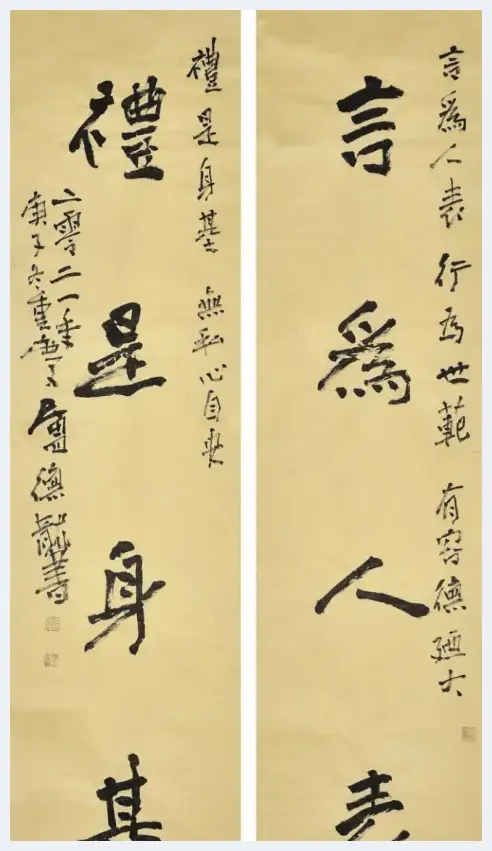 言爲人表 行为世範 有容德廼大
言爲人表
禮是身基 無私心自安
禮是身基
二零二一年
庚子冬重慶盧德龍書